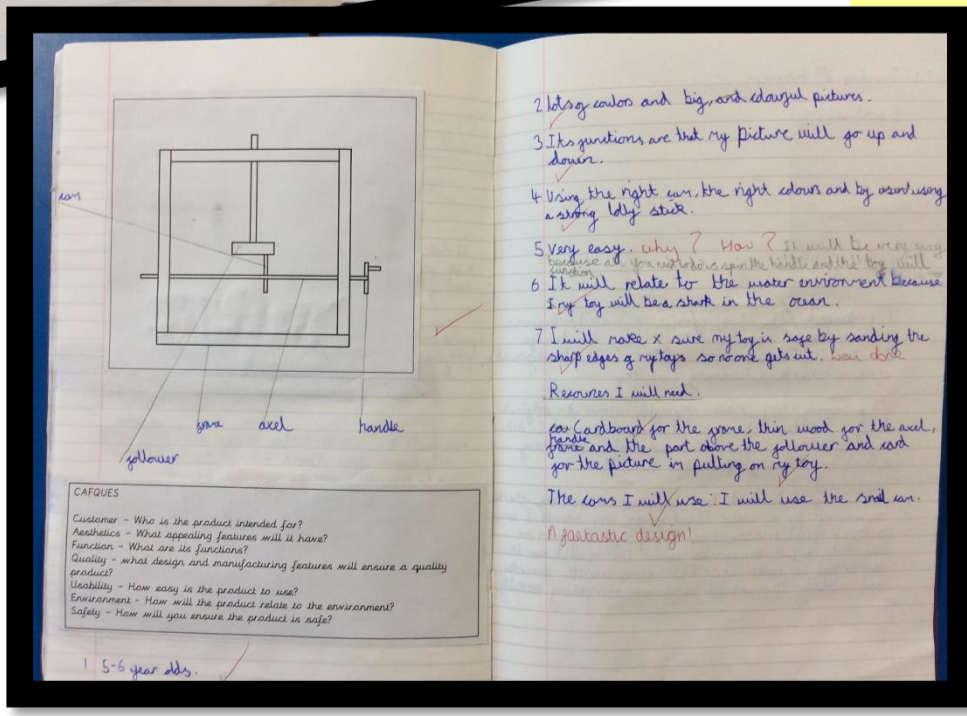 cam
frame axel handle
follower
CAFQUES
Customer - Who is the product intended for?
Aesthetics - What appealing features will it have?
Function - What are its functions?
Quality - what design and manufacturing features will ensure a quality
product?
Usability - How easy is the product to use?
Environment - How will the product relate to the environment?
Safety - How will you ensure the product is safe?
1 5-6 year olds.
2 lots of coulors and big, and colourful pictures.
3 Its functions are that my picture will go up and
down.
4 Using the right cam, the right colours and by using
a strong lolly stick.
5 Very easy. why? How? It will be very easy
because all you need to do is spin the handle and the toy will
function
6 It will relate to the water environment because
my toy will be a shark in the ocean.
7 I will make x sure my toy is safe by sanding the
sharp edges of my toys so no one gets cut. well done
Resources I will need.
Cardboard for the frame, thin wood for the axel,
handle
frame and the part above the follower and card
for the picture im putting on my toy.
The cams I will use: I will use the snail cam.
A fantastic design!